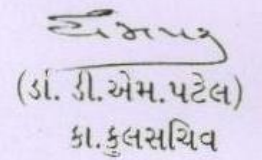 (ડાં. ડી.એમ.પટેલ)
કા.કુલસચિવ